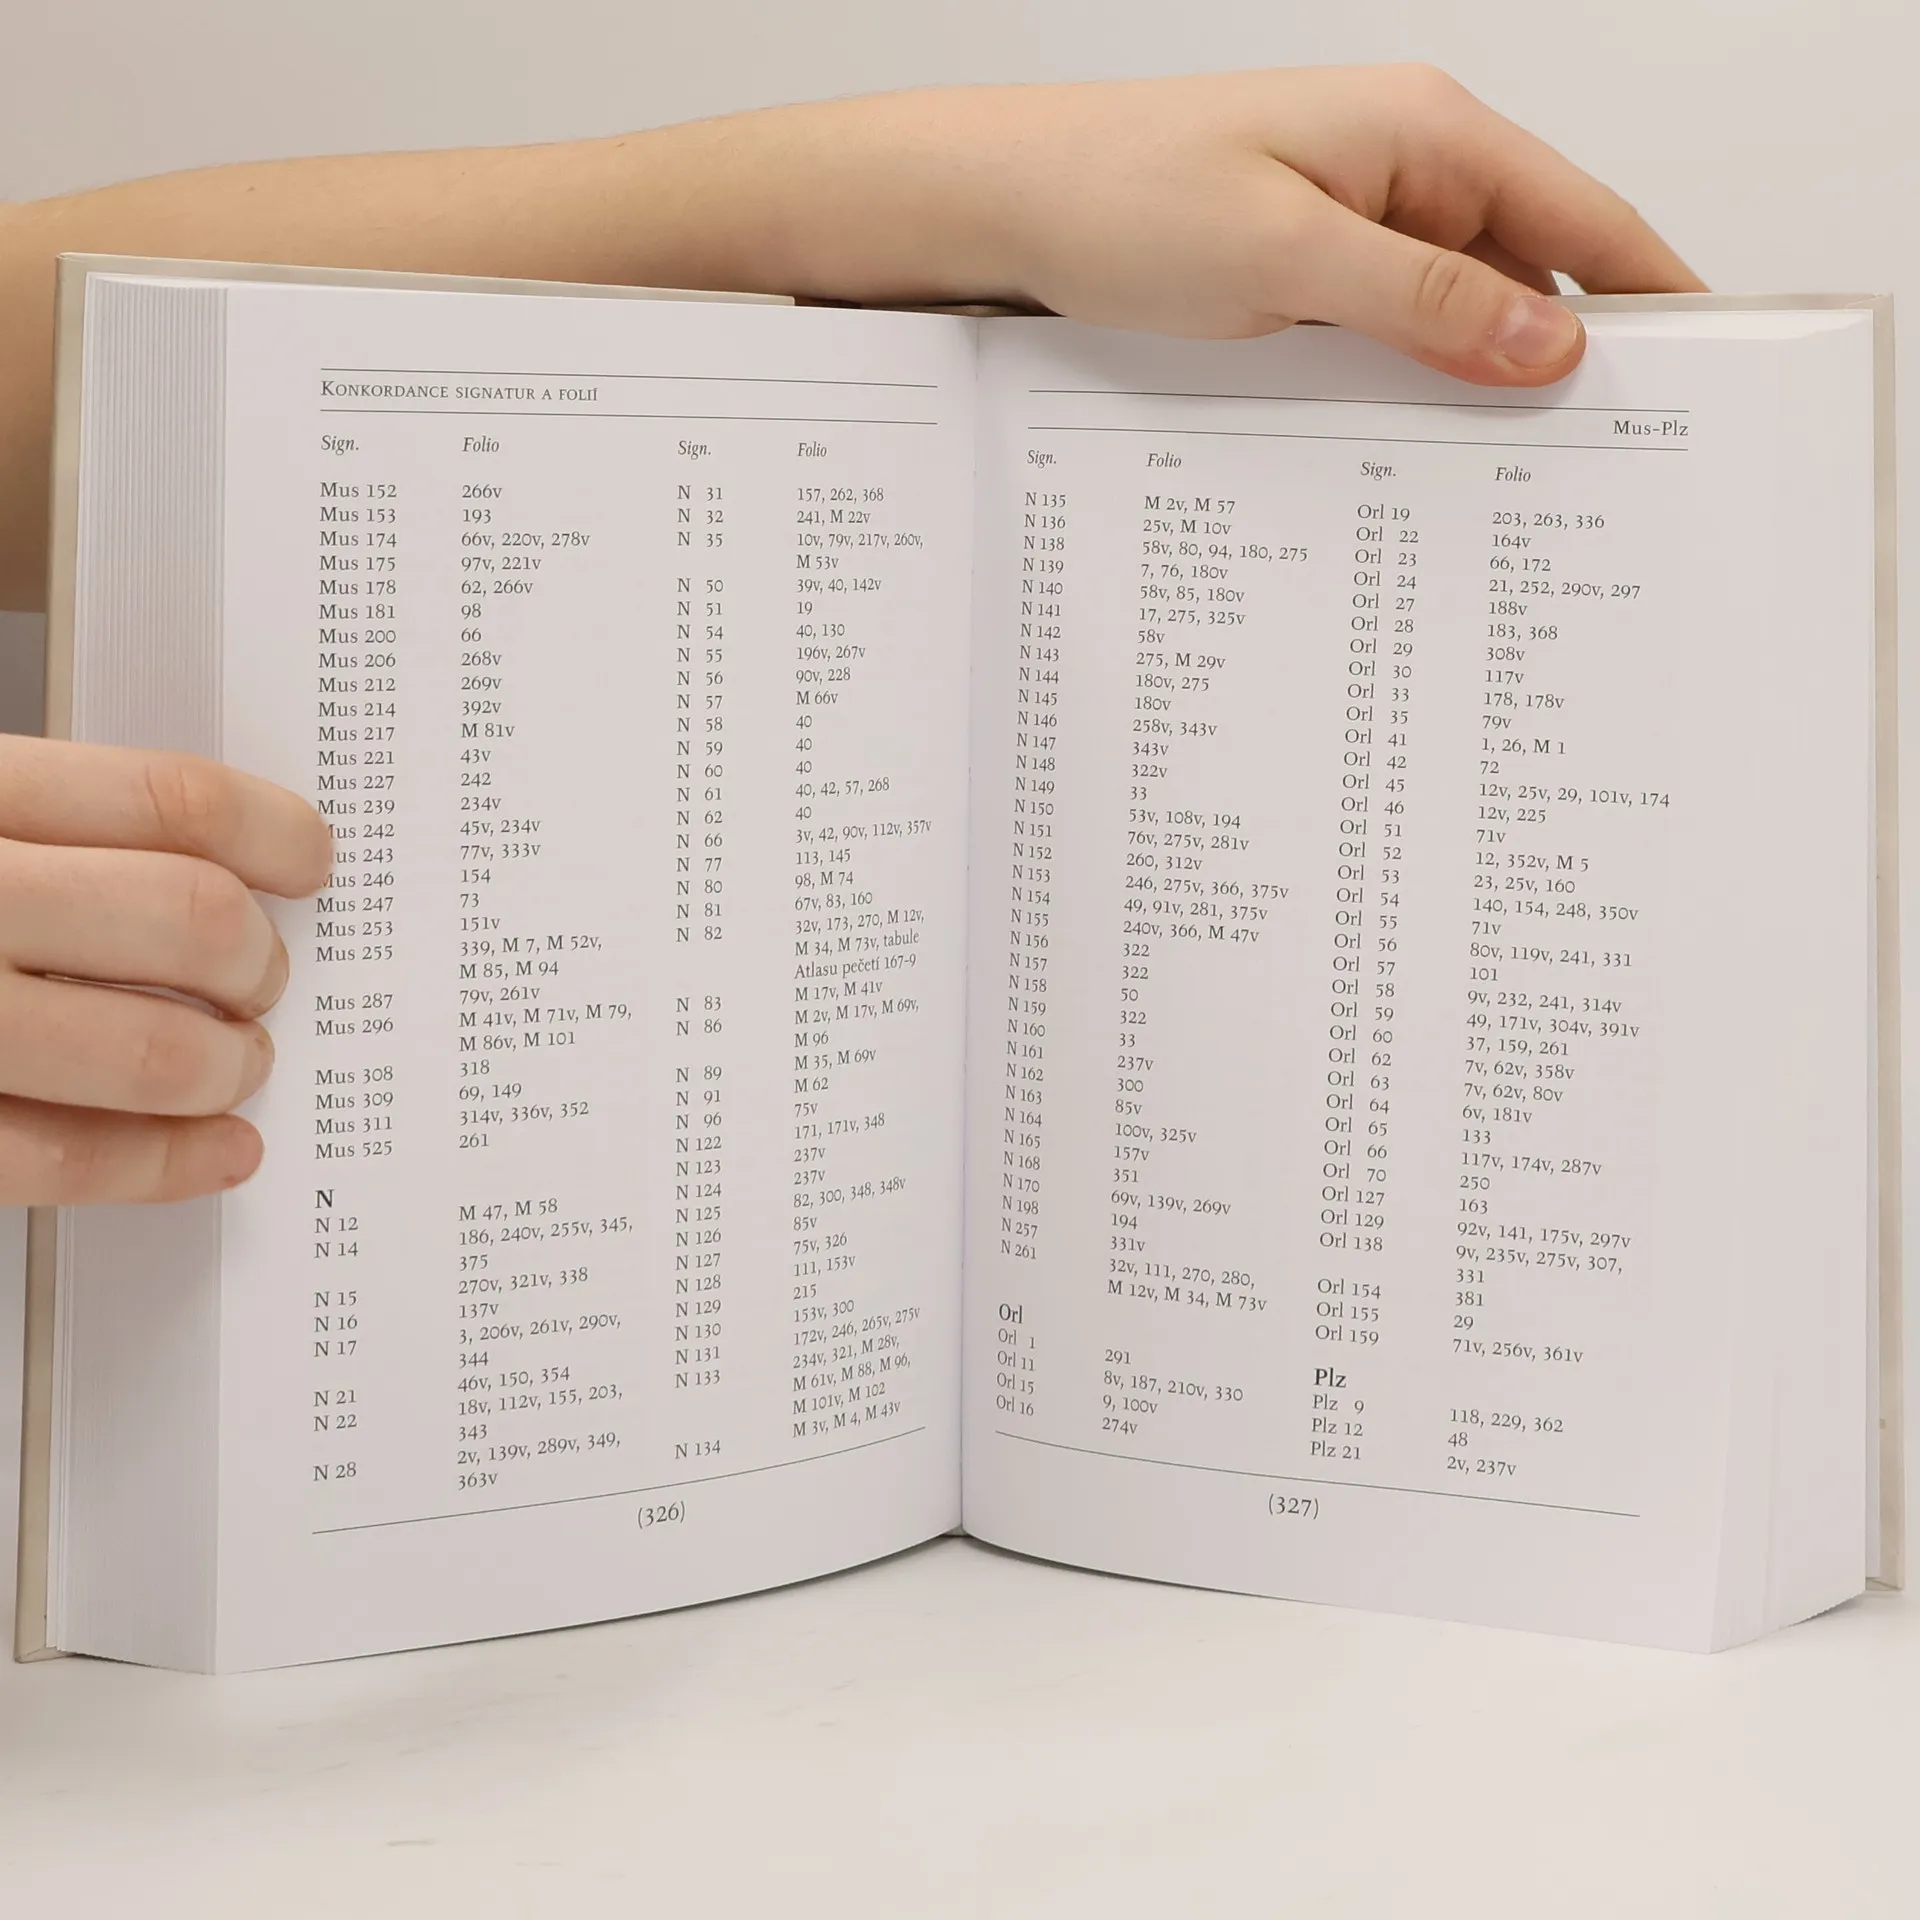 KONKORDANCE SIGNATUR A FOLIÍ
Sign. Folio
Mus 152 266v
Mus 153 193
Mus 174 66v, 220v, 278v
Mus 175 97v, 221v
Mus 178 62, 266v
Mus 181 98
Mus 200 66
Mus 206 268v
Mus 212 269v
Mus 214 392v
Mus 217 M 81v
Mus 221 43v
Mus 227 242
Mus 239 234v
Mus 242 45v, 234v
us 243 77v, 333v
Mus 246 154
Mus 247 73
Mus 253 151v
Mus 255 339, M 7, M 52v,
M 85, M 94
Mus 287 79v, 261v
Mus 296 M 41v, M 71v, M 79,
M 86v, M 101
Mus 308 318
Mus 309 69, 149
Mus 311 314v, 336v, 352
Mus 525 261
N
N 12 M 47, M 58
N 14 186, 240v, 255v, 345,
375
N 15 270v, 321v, 338
N 16 137v
N 17 3, 206v, 261v, 290v,
344
N 21 46v, 150, 354
N 22 18v, 112v, 155, 203,
343
N 28 2v, 139v, 289v, 349,
363v
Sign. Folio
N 31 157, 262, 368
N 32 241, M 22v
N 35 10v, 79v, 217v, 260v,
M 53v
N 50 39v, 40, 142v
N 51 19
N 54 40, 130
N 55 196v, 267v
N 56 90v, 228
N 57 M 66v
N 58 40
N 59 40
N 60 40
N 61 40, 42, 57, 268
N 62 40
N 66 3v, 42, 90v, 112v, 357v
N 77 113, 145
N 80 98, M 74
N 81 67v, 83, 160
N 82 32v, 173, 270, M 12v,
M 34, M 73v, tabule
Atlasu pečetí 167-9
N 83 M 17v, M 41v
N 86 M 2v, M 17v, M 69v,
M 96
N 89 M 35, M 69v
N 91 M 62
N 96 75v
N 122 171, 171v, 348
N 123 237v
N 124 237v
N 125 82, 300, 348, 348v
N 126 85v
N 127 75v, 326
N 128 111, 153v
N 129 215
N 130 153v, 300
N 131 172v, 246, 265v, 275v
N 133 234v, 321, M 28v,
M 61v, M 88, M 96,
M 101v, M 102
N 134 M 3v, M 4, M 43v
(326)
Mus-Plz
Sign. Folio
N 135 M 2v, M 57
N 136 25v, M 10v
N 138 58v, 80, 94, 180, 275
N 139 7, 76, 180v
N 140 58v, 85, 180v
N 141 17, 275, 325v
N 142 58v
N 143 275, M 29v
N 144 180v, 275
N 145 180v
N 146 258v, 343v
N 147 343v
N 148 322v
N 149 33
N 150 53v, 108v, 194
N 151 76v, 275v, 281v
N 152 260, 312v
N 153 246, 275v, 366, 375v
N 154 49, 91v, 281, 375v
N 155 240v, 366, M 47v
N 156 322
N 157 322
N 158 50
N 159 322
N 160 33
N 161 237v
N 162 300
N 163 85v
N 164 100v, 325v
N 165 157v
N 168 351
N 170 69v, 139v, 269v
N 198 194
N 257 331v
N 261 32v, 111, 270, 280,
M 12v, M 34, M 73v
Orl
Orl 1 291
Orl 11 8v, 187, 210v, 330
Orl 15 9, 100v
Orl 16 274v
Sign. Folio
Orl 19 203, 263, 336
Orl 22 164v
Orl 23 66, 172
Orl 24 21, 252, 290v, 297
Orl 27 188v
Orl 28 183, 368
Orl 29 308v
Orl 30 117v
Orl 33 178, 178v
Orl 35 79v
Orl 41 1, 26, M 1
Orl 42 72
Orl 45 12v, 25v, 29, 101v, 174
Orl 46 12v, 225
Orl 51 71v
Orl 52 12, 352v, M 5
Orl 53 23, 25v, 160
Orl 54 140, 154, 248, 350v
Orl 55 71v
Orl 56 80v, 119v, 241, 331
Orl 57 101
Orl 58 9v, 232, 241, 314v
Orl 59 49, 171v, 304v, 391v
Orl 60 37, 159, 261
Orl 62 7v, 62v, 358v
Orl 63 7v, 62v, 80v
Orl 64 6v, 181v
Orl 65 133
Orl 66 117v, 174v, 287v
Orl 70 250
Orl 127 163
Orl 129 92v, 141, 175v, 297v
Orl 138 9v, 235v, 275v, 307,
331
Orl 154 381
Orl 155 29
Orl 159 71v, 256v, 361v
Plz
Plz 9 118, 229, 362
Plz 12 48
Plz 21 2v, 237v
(327)